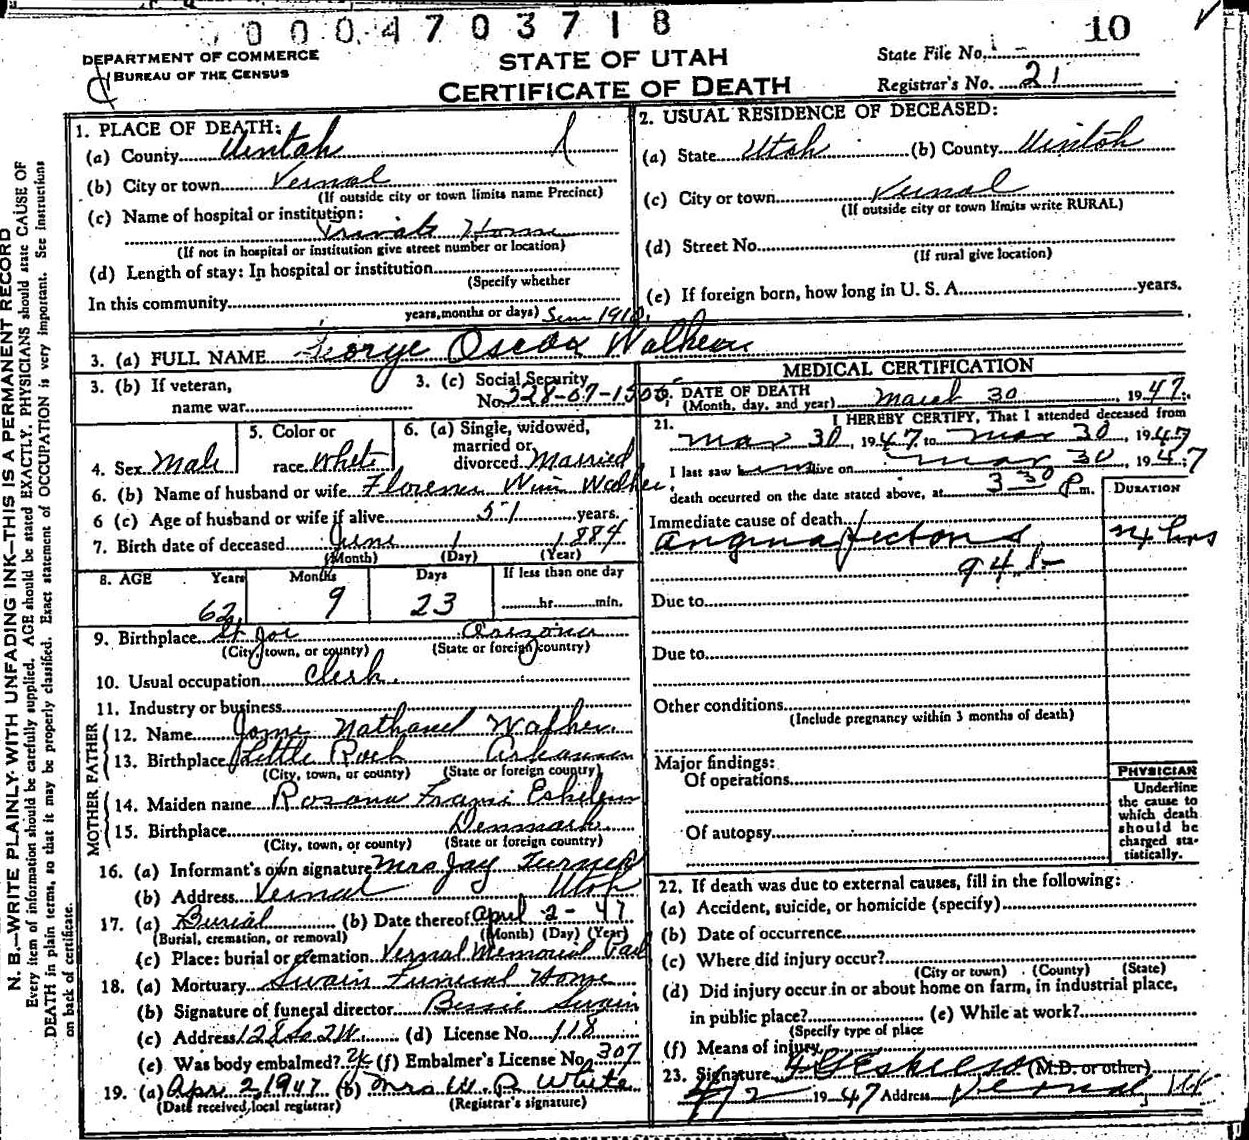 0 0 0 4 7 0 3 7 1 8
10
DEPARTMENT OF COMMERCE
BUREAU OF THE CENSUS
STATE OF UTAH
CERTIFICATE OF DEATH
State File No.
Registrar's No. 21
N. B.—WRITE PLAINLY WITH UNFADING INK—THIS IS A PERMANENT RECORD
Every item of information should be carefully supplied. AGE should be stated EXACTLY. PHYSICIANS should state CAUSE OF
DEATH in plain terms, so that it may be properly classified. Exact statement of OCCUPATION is very important. See instructions
on back of certificate.
1. PLACE OF DEATH:
(a) County Uintah
(b) City or town Vernal
(If outside city or town limits name Precinct)
(c) Name of hospital or institution:
Private Home
(If not in hospital or institution give street number or location)
(d) Length of stay: In hospital or institution
(Specify whether
In this community
years, months or days)
2. USUAL RESIDENCE OF DECEASED:
(a) State Utah (b) County Uintah
(c) City or town Vernal
(If outside city or town limits write RURAL)
(d) Street No.
(If rural give location)
(e) If foreign born, how long in U. S. A. years.
3. (a) FULL NAME George Oscar Walker
3. (b) If veteran,
name war
3. (c) Social Security
No. 528-07-1505
4. Sex Male
5. Color or
race White
6. (a) Single, widowed,
married or
divorced Married
6. (b) Name of husband or wife Florence Walker
6 (c) Age of husband or wife if alive 51 years.
7. Birth date of deceased June 1 1884
(Month) (Day) (Year)
8. AGE Years Months Days If less than one day
62 9 23 hr. min.
9. Birthplace St Joe Arizona
(City, town, or county) (State or foreign country)
10. Usual occupation Clerk
11. Industry or business
FATHER
12. Name Nathaniel Walker
13. Birthplace Little Rock Arkansas
(City, town, or county) (State or foreign country)
MOTHER
14. Maiden name Rosana
15. Birthplace Denmark
(City, town, or county) (State or foreign country)
16. (a) Informant's own signature Mrs Jay Turner
(b) Address Vernal Utah
17. (a) Burial (b) Date thereof April 2-47
(Burial, cremation, or removal) (Month) (Day) (Year)
(c) Place: burial or cremation Vernal Memorial Park
18. (a) Mortuary Swain Funeral Home
(b) Signature of funeral director Bessie Swain
(c) Address 128 So 2W. (d) License No. 118
(e) Was body embalmed? (f) Embalmer's License No. 307
19. (a) Apr. 2, 1947 (b) Mrs W. P. White
(Date received, local registrar) (Registrar's signature)
MEDICAL CERTIFICATION
DATE OF DEATH
(Month, day, and year) March 30 1947
21. I HEREBY CERTIFY, That I attended deceased from
Mar 30, 1947 to Mar 30, 1947
I last saw him alive on Mar 30, 1947
death occurred on the date stated above, at 3 30 P m.
DURATION
Immediate cause of death
Angina Pectoris 24 hrs
Due to
Due to
Other conditions
(Include pregnancy within 3 months of death)
Major findings:
Of operations
Of autopsy
PHYSICIAN
Underline
the cause to
which death
should be
charged sta-
tistically.
22. If death was due to external causes, fill in the following:
(a) Accident, suicide, or homicide (specify)
(b) Date of occurrence
(c) Where did injury occur?
(City or town) (County) (State)
(d) Did injury occur in or about home on farm, in industrial place,
in public place? (e) While at work?
(Specify type of place
(f) Means of injury
23. Signature (M.D. or other)
4/2 1947 Address Vernal, Ut